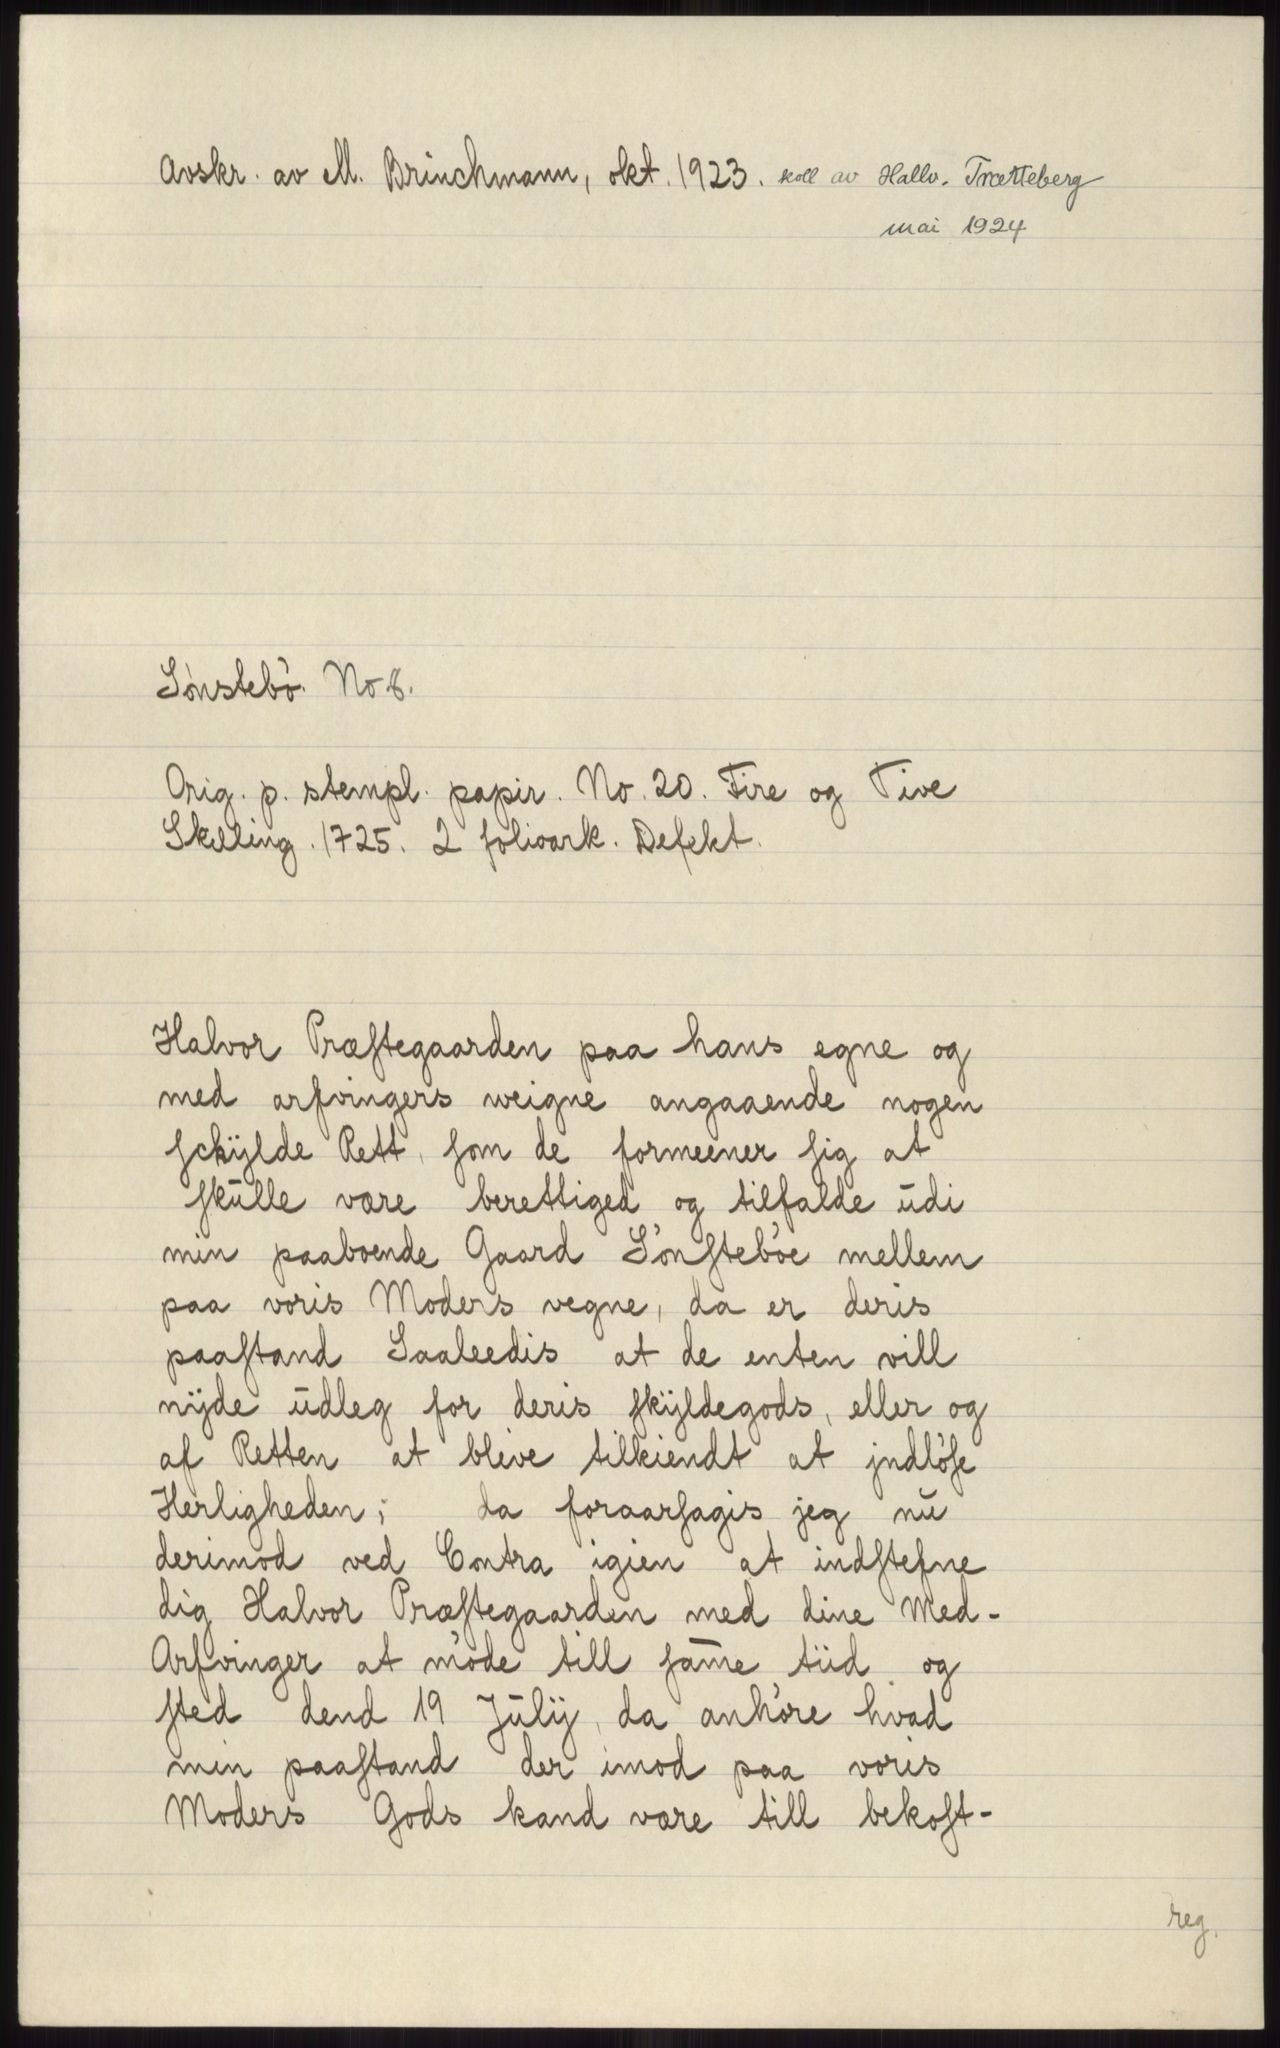 Avskr. av M. Brinchmann, okt. 1923. koll av Hallv. Trætteberg
mai 1924
Sønstebø. No 8.
Orig. p. stempl. papir. No. 20. Fire og Tive
Skilling. 1725. 2 folioark. Defekt.
Halvor Præstegaarden paa hans egne og
med arfvingers weigne angaaende nogen
schÿlde Rett, som de formeener sig at
skūlle være berettiged og tilfalde ūdi
min paaboende Gaard Sønstebøe mellem
paa voris Moders vegne, da er deris
paastand Saaleedis at de enten vill
nÿde ūdleg for deris skÿldegods, eller og
af Retten at blive tilkiendt at jndløse
Herligheden; da foraarsagis jeg nū
derimod ved Contra igien at indstefne
dig Halvor Præstegaarden med dine Med-
Arfvinger at møde till sam̄e tiid og
sted dend 19 Jūlÿ, da anhøre hvad
min paastand der imod paa voris
Moders Gods kand være till bekost-
reg.